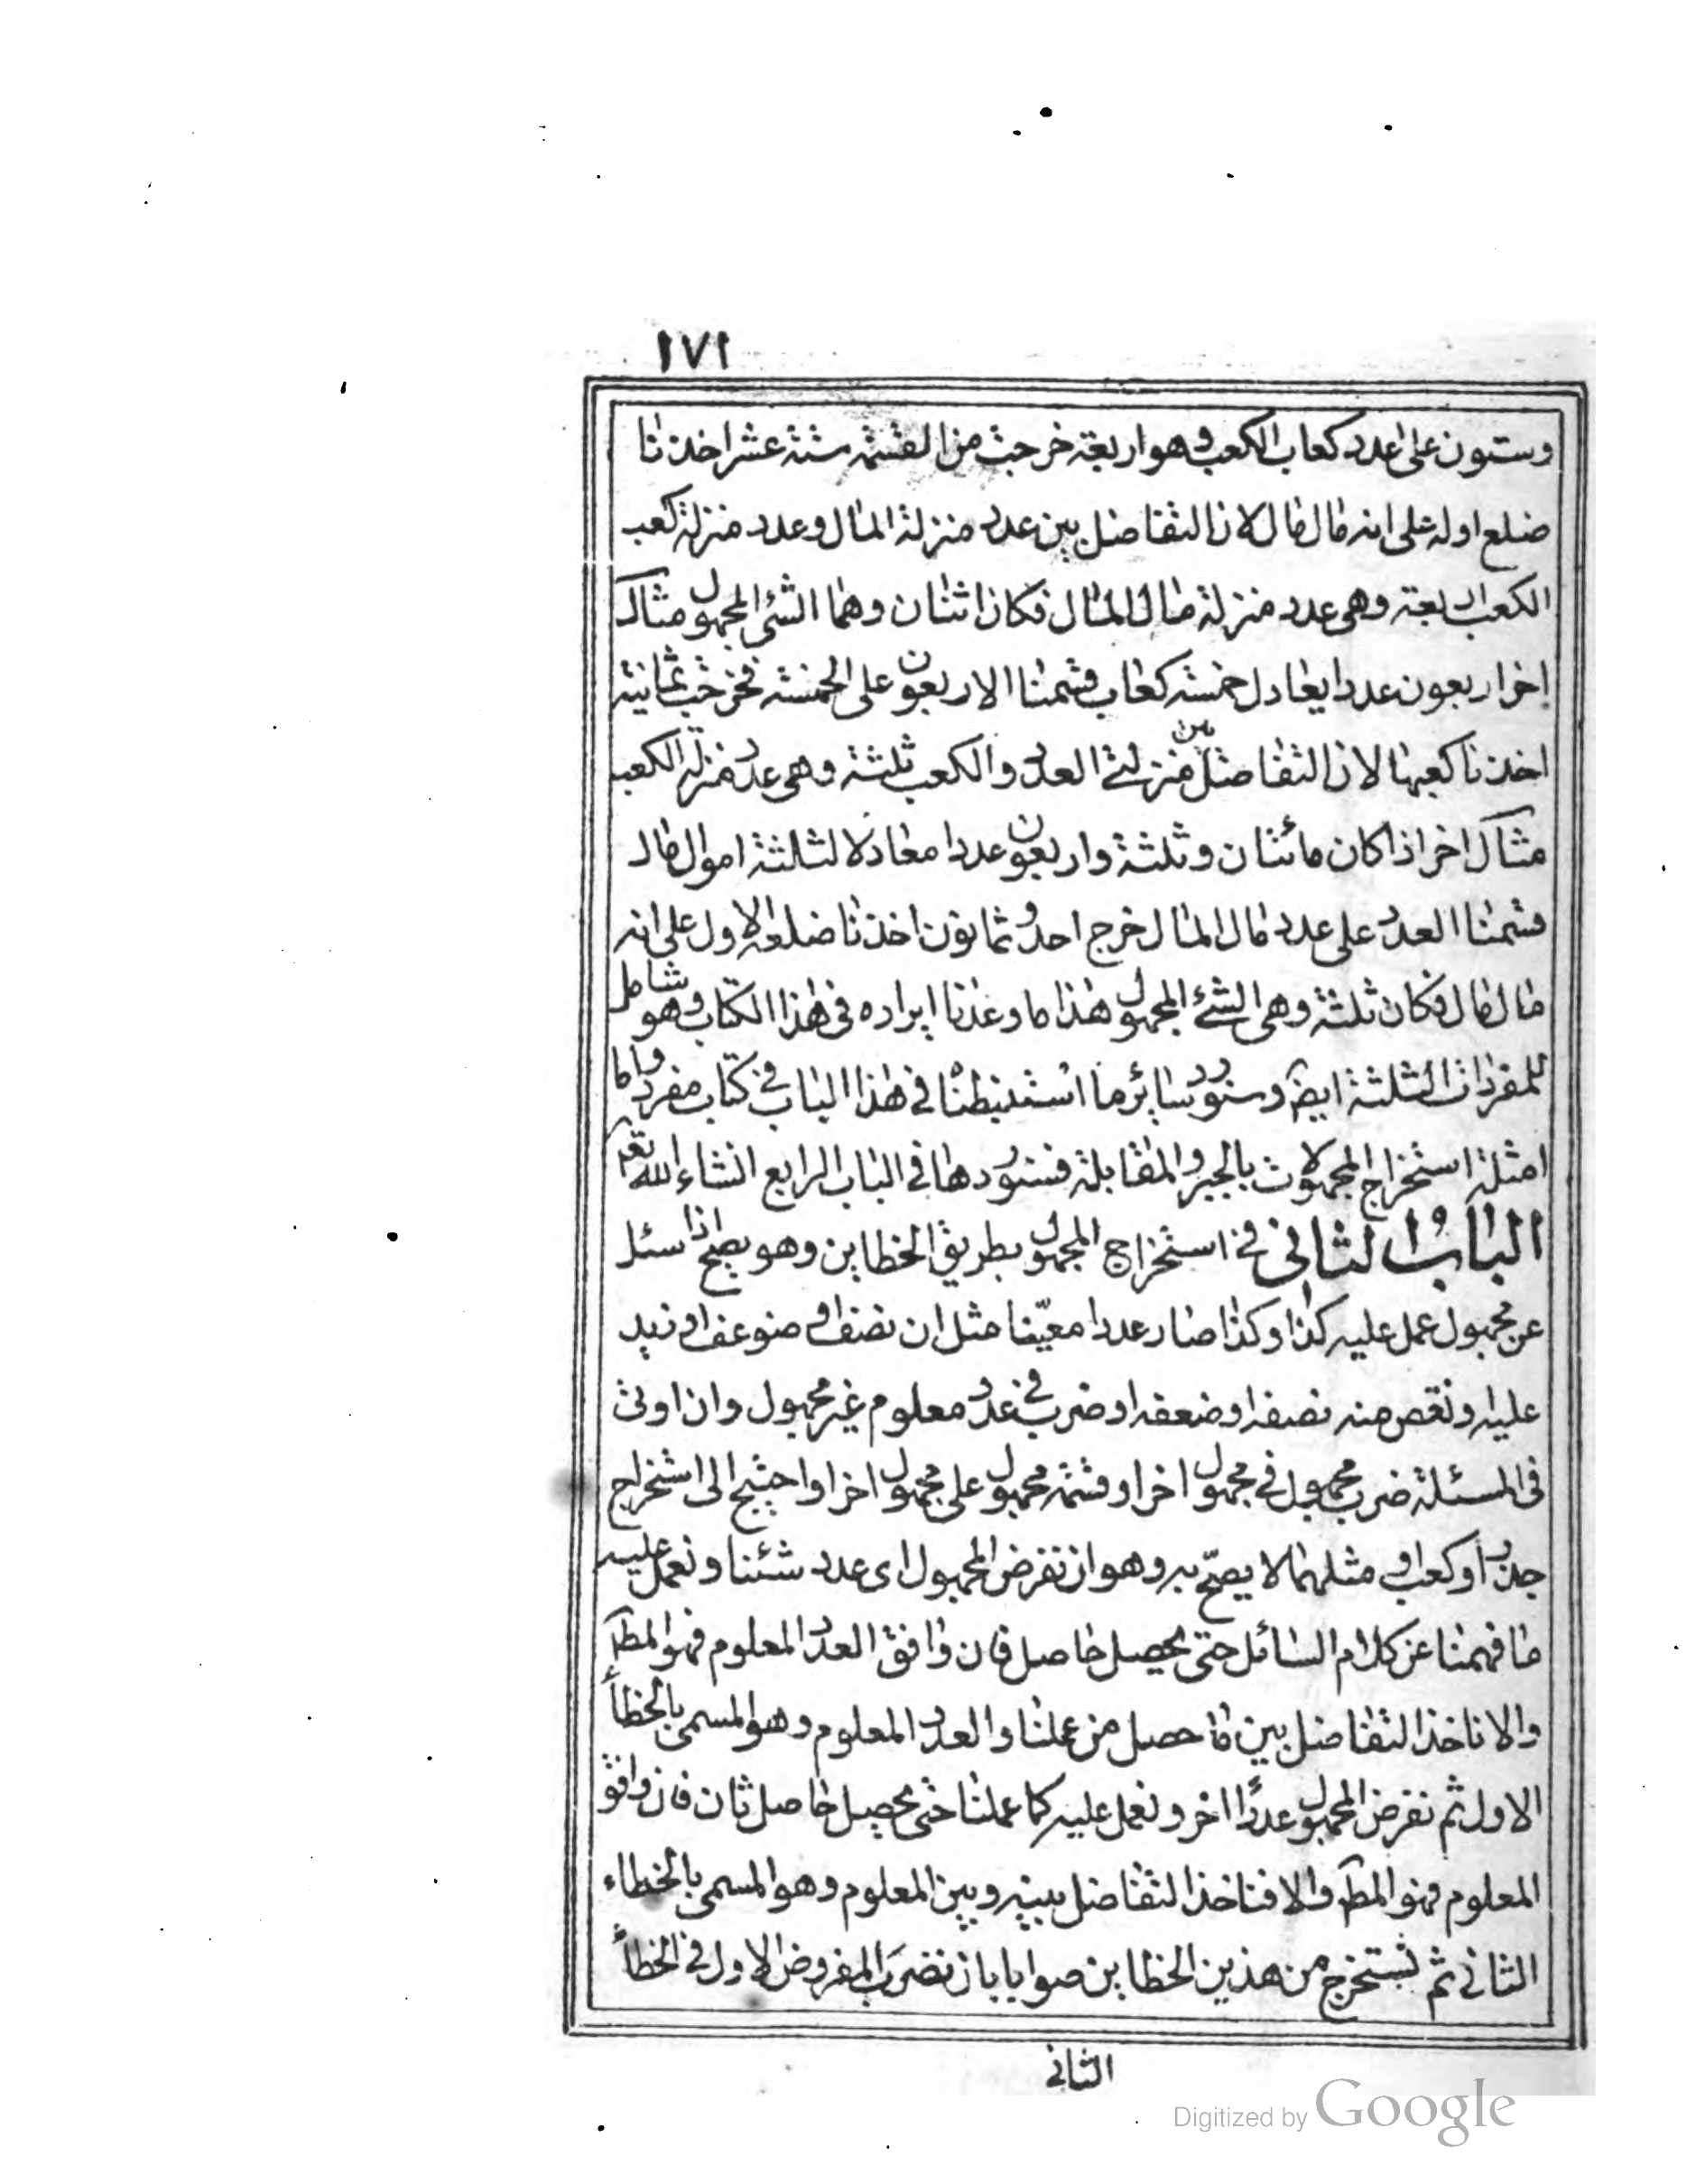 ١٧١
وستون على عدد كعاب الكعب وهو اربعة خرجت من القسمة ستة عشر اخذنا
ضلع اوله على انه مال مال لان التفاضل بين عدد منزلة المال وعدد منزلة كعب
الكعب اربعة وهى عدد منزلة مال المال فكان اثنان وهما الشئ المجهول مثال
اخر اربعون عددا يعادل خمسة كعاب قسمنا الاربعون على الخمسة فخرجت ثمانية
اخذنا كعبها لان التفاضل بين منزلتى العدد والكعب ثلثة وهى عدد منزلة الكعب
مثال اخر اذا كان مائتان وثلثة واربعون عددا معادلا لثلثة اموال مال
قسمنا العدد على عدد مال المال خرج احد وثمانون اخذنا ضلعه الاول على انه
مال مال فكان ثلثة وهى الشئ المجهول هذا ما وعدنا ايراده فى هذا الكتاب وهو شامل
للمفردات الثلثة ايضا وسنورد سائر ما استنبطناه فى هذا الباب فى كتاب مفرد واما
امثلة استخراج المجهولات بالجبر والمقابلة فسنوردها فى الباب الرابع انشاء الله تعم
الباب الثانى فى استخراج المجهول بطريق الخطاين وهو يصح اذا سئل
عن مجهول عمل عليه كذا وكذا صار عددا معيّنا مثل ان نصف او ضوعف او زيد
عليه و نقص منه نصفه او ضعفه او ضرب فى عدد معلوم غير مجهول وان اوتى
فى المسئلة ضرب مجهول فى مجهول اخر او قسمة مجهول على مجهول اخر او احتيج الى استخراج
جذر او كعب او مثلهما لا يصحّ به وهو ان نفرض المجهول اى عدد شئنا ونعمل عليه
ما فهمنا عن كلام السائل حتى يحصل حاصل فان وافق العدد المعلوم فهو المط
والا ناخذ التفاضل بين ما حصل من عملنا والعدد المعلوم وهو المسمى بالخطأ
الاول ثم نفرض المجهول عددا اخر ونعمل عليه كما عملنا حتى يحصل حاصل ثان فان وافق
المعلوم فهو المط والا فناخذ التفاضل بينه وبين المعلوم وهو المسمى بالخطاء
الثانى ثم نستخرج من هذين الخطاين صوابا بان نضرب المفروض الاول فى الخطأ
الثانى
Digitized by Google